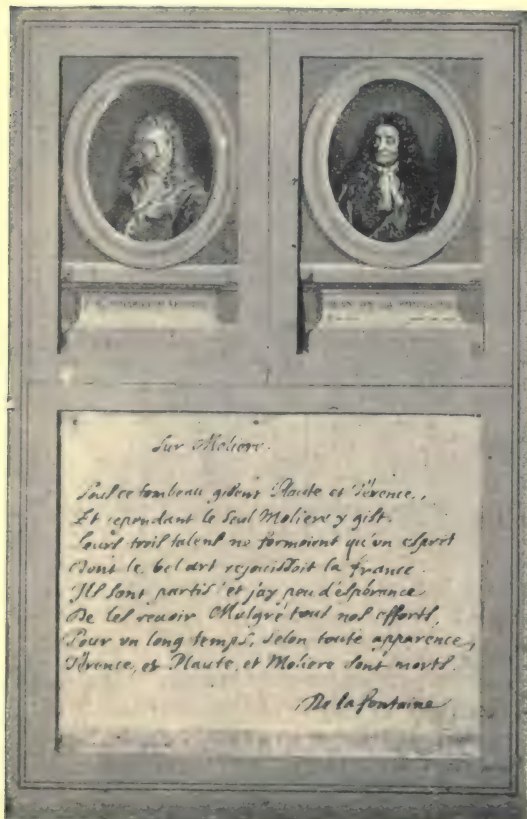 JEAN DE LA FONTAINE
Sur Moliere.
Sous ce tombeau gisent Plaute et Térence,
Et cependant le seul Moliere y gist.
Leurs trois talens ne formoient qu'un esprit
Dont le bel art rejouissoit la france.
Ils sont partis! et j'ay peu d'espérance
De les revoir Malgré tous nos efforts,
Pour un long temps, selon toute apparence,
Térence, et Plaute, et Moliere sont morts.
De la fontaine